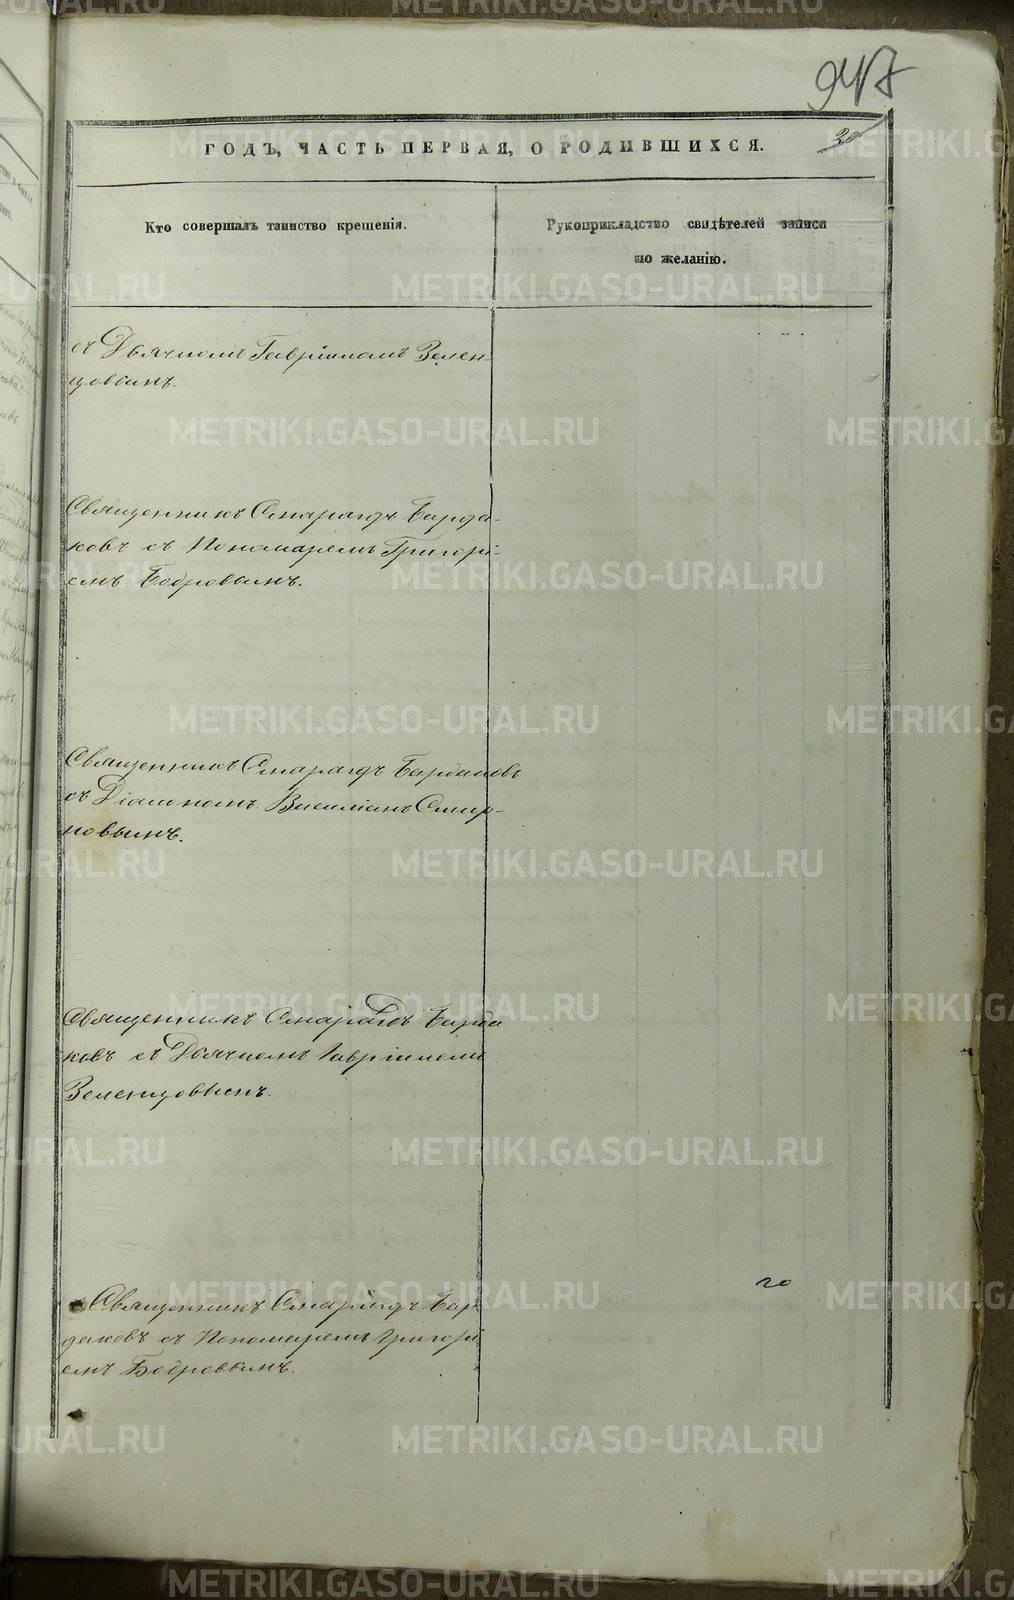 947
30
ГОДЪ, ЧАСТЬ ПЕРВАЯ, О РОДИВШИХСЯ.
Кто совершалъ таинство крещенія.
Рукоприкладство свидѣтелей записи
по желанію.
съ Дьячкомъ Гавріиломъ Зелен-
цовымъ.
Священникъ Смарагдъ Барда-
ковъ съ Пономаремъ Григорі-
емъ Бобровымъ.
Священникъ Смарагдъ Бардаковъ
съ Діакономъ Василіемъ Смир-
новымъ.
Священникъ Смарагдъ Барда
ковъ съ Дьячкомъ Гавріиломъ
Зеленцовымъ.
Священникъ Смарагдъ Бар
даковъ съ Пономаремъ Григорі
емъ Бобровымъ.
METRIKI.GASO-URAL.RU